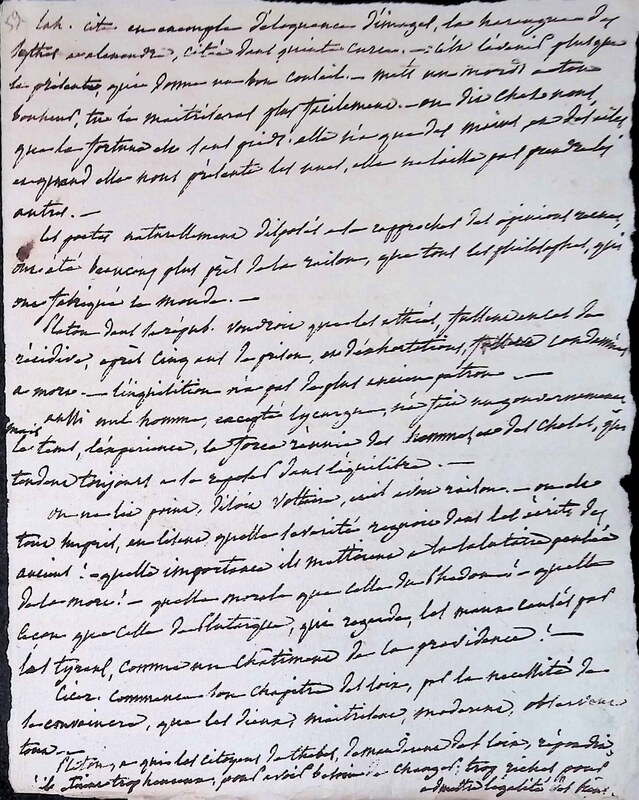 57 Lah. cite en exemple d'éloquence d'images, la harengue des
scythes a alexandre, citée dans quinte curce. — c'est l'évenil plusque
le présente qui donne un bon conseil. — mets un mords a ton
bonheur, tu le maitriseras plus facilement. — on dit chez nous,
que la fortune est sans pieds. elle n'a que des mains, et des ailes
et quand elle nous présente les unes, elle ne laisse pas prendre les
autres. —
les poetes naturellement disposés a se rapprocher des opinions recues,
ont été beaucoup plus près de la raison, que tous les philosophes, qui
ont fabriqué le monde. —
Platon dans sa répub. voudroit que les athées, fussent en cas de
récidive, après cinq ans de prison, et d'exhortations, condamnés
a mort. — l'inquisition n'a pas de plus ancien patron —
aussi nul homme, excepté lycurgue, n'a fait un gouvernement,
mais le tems, l'expérience, la force réunie des hommes et des choses, qui
tendent toujours a se reposer dans l'équilibre. —
on ne lit point, disoit Voltaire, et il avoit raison. — on est
tout surpris, en lisant quelle sévérité regnoit dans les écrits des
anciens ! — quelle importance ils mettoient a la salutaire pensée
de la mort ! — quelle morale que celle du Phedon ! — quelle
lecon que celle de Plutarque, qui regarde, les maux causés par
les tyrans, comme un châtiment de la providence ! —
Cicer. commence son chapitre des loix, par la nécessité de
se convaincre, que les dieux, maitrisent, moderent, observent
tout. —
Platon, a qui les citoyens de thebes, demandoient des loix, répondit,
ils étoient trop heureux, pour avoir besoin de changer, trop riches, pour
admettre l'égalité des biens.